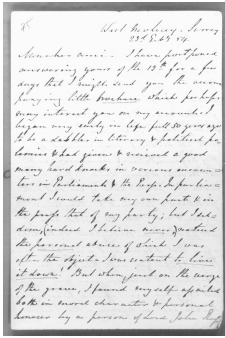 West Molesey, Surrey
23d Feby 54.
Mon cher ami – I have postponed
answering yours of the 13th for a few
days that I might send you the accom
panying little brochure which perhaps
may interest you on my account. I
began very early in life full 50 years ago
to be a dabbler in literary & political po
lemics & had given & received a good
many hard knocks in various encoun-
ters in Parliament & the Press. In parlia-
ment I would take my own part & in
the press that of my party; but I sel-
dom, indeed I believe never, noticed
the personal abuse of which I was
often the object. I was content to live
it down! But when, just on the verge
of the grave, I found myself assailed
both in moral character & personal
honour by a person of Lord John